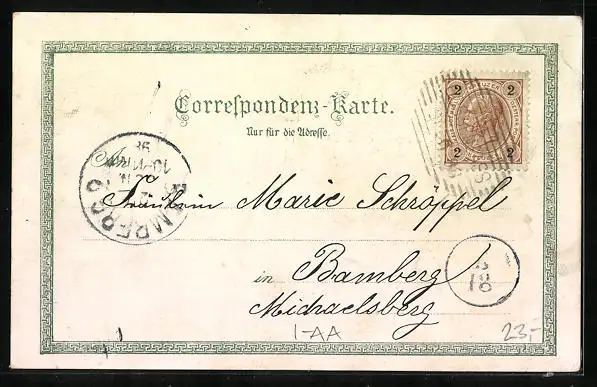 Correspondenz-Karte.
Nur für die Adresse.
2 2
2 2
An
Fräulein Marie Schröppel
in Bamberg
Michaelsberg
BAMBERG
10-11
98
I-AA
23,-